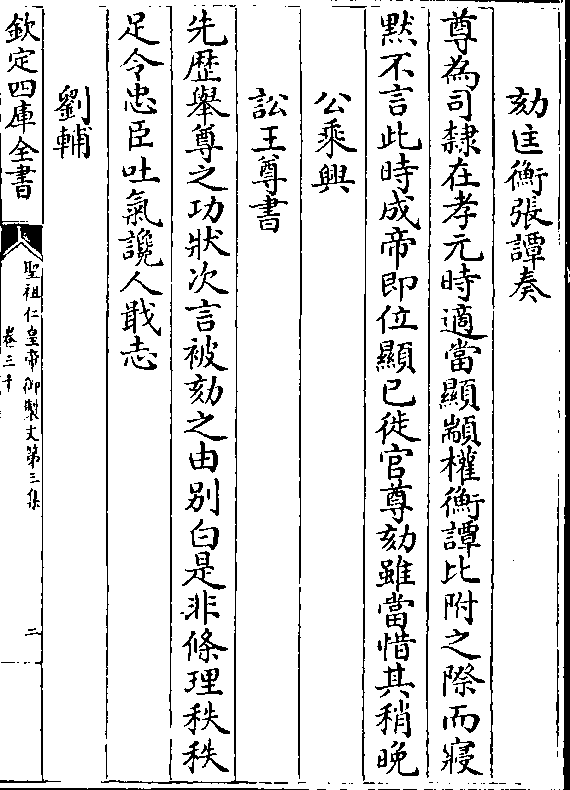 劾匡衡張譚奏
尊為司隸在孝元時適當顯顓權衡譚比附之際而寢
黙不言此時成帝即位顯已徙官尊劾雖當惜其稍晚
公乘興
訟王尊書
先歴舉尊之功狀次言被劾之由別白是非條理秩秩
足令忠臣吐氣讒人戢志
劉輔
欽定四庫全書
聖祖仁皇帝御製文第三集
卷三十
二